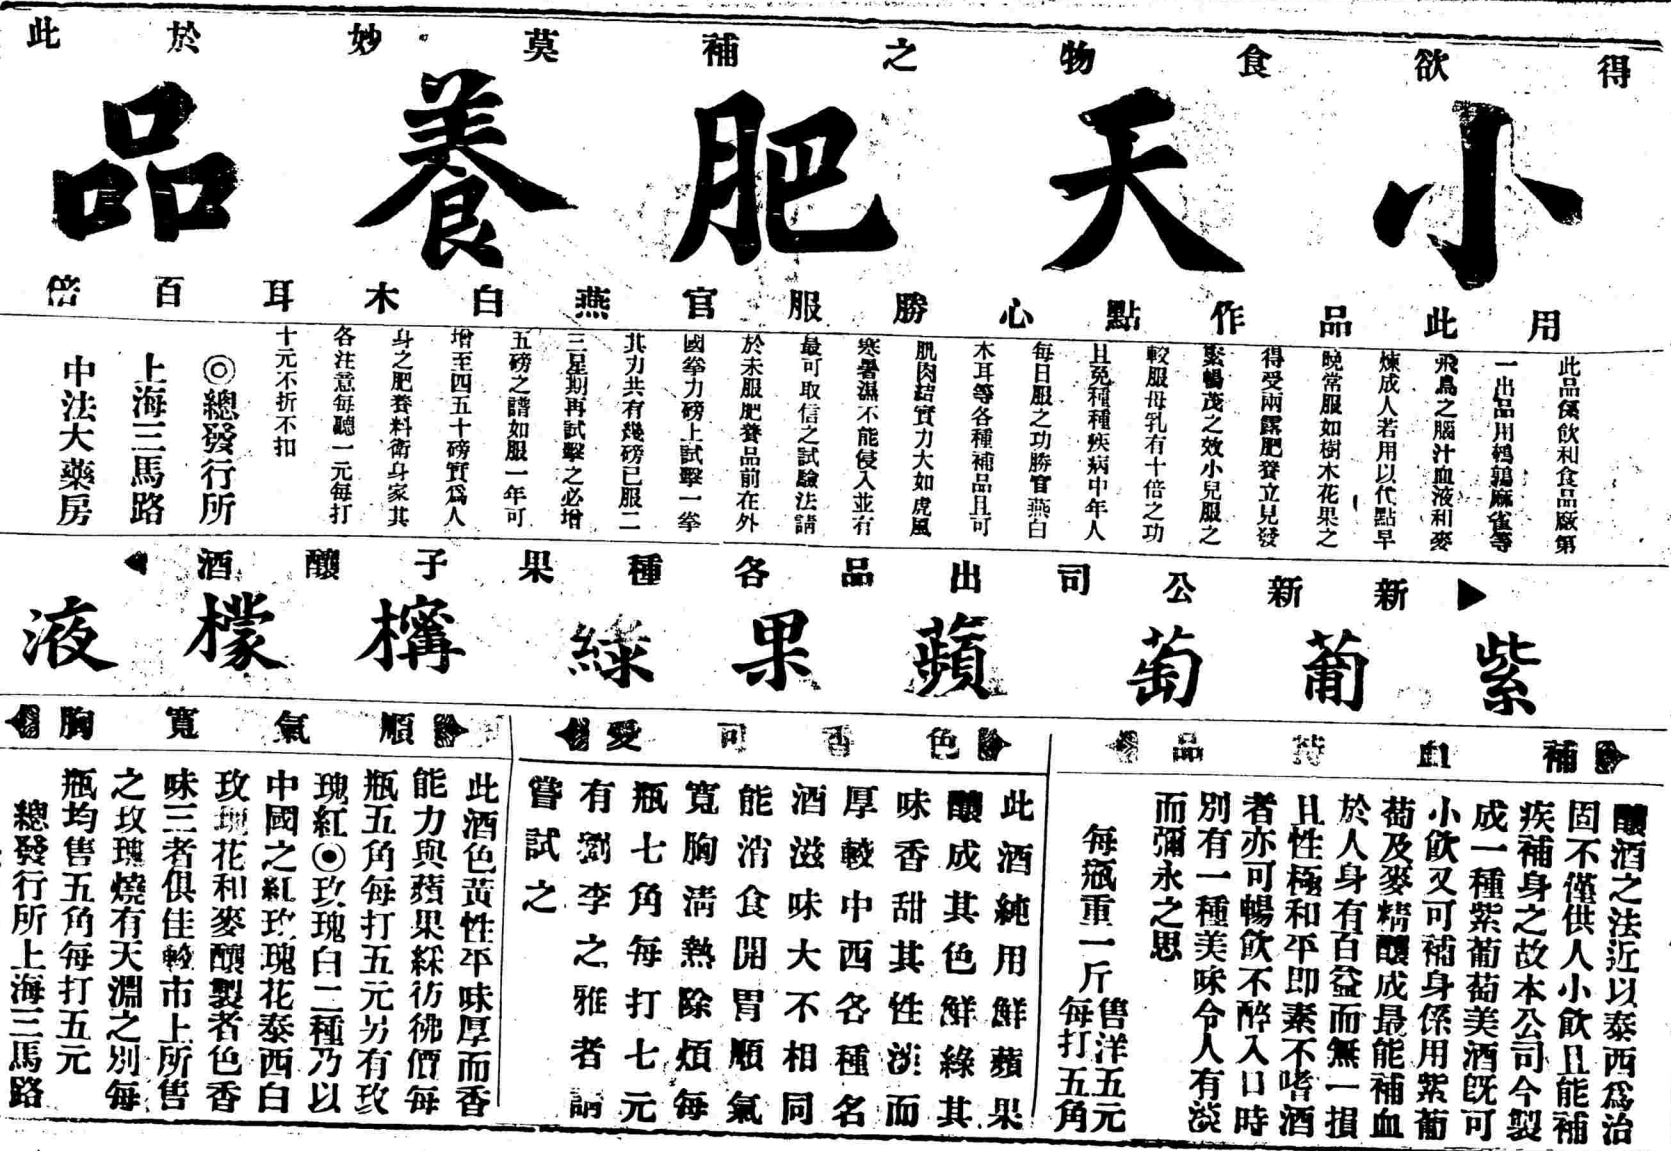 得欲食物之補莫妙於此
小天肥養品
用此品作點心勝服官燕白木耳百倍
此品係飲和食品廠第
一出品用鵪鶉麻雀等
飛鳥之腦汁血液和麥
煉成人若用以代點早
晚常服如樹木花果之
得受雨露肥養立見發
榮暢茂之效小兒服之
較服母乳有十倍之功
且免種種疾病中年人
每日服之功勝官燕白
木耳等各種補品且可
肌肉結實力大如虎風
寒暑濕不能侵入並有
最可取信之試驗法請
於未服肥養品前在外
國拳力磅上試擊一拳
其力共有幾磅已服二
三星期再試擊之必增
五磅之譜如服一年可
增至四五十磅實爲人
身之肥養料衛身家其
各注意每聽一元每打
十元不折不扣
◎總發行所
上海三馬路
中法大藥房
▶新新公司出品各種果子釀酒◀
紫葡萄
蘋果綠
檸檬液
補血特品
釀酒之法近以泰西爲治
固不僅供人小飲且能補
疾補身之故本公司今製
成一種紫葡萄美酒旣可
小飲又可補身係用紫葡
萄及麥精釀成最能補血
於人身有百益而無一損
且性極和平即素不嗜酒
者亦可暢飲不醉入口時
別有一種美味令人有淡
而彌永之思
每瓶重一斤售洋五元每打五角
色香可愛
此酒純用鮮蘋果
釀成其色鮮綠其
味香甜其性淡而
厚較中西各種名
酒滋味大不相同
能消食開胃順氣
寬胸淸熱除煩每
瓶七角每打七元
有劉李之雅者請
嘗試之
順氣寬胸
此酒色黃性平味厚而香
能力與蘋果綵彷彿價每
瓶五角每打五元另有玫
瑰紅◉玫瑰白二種乃以
中國之紅玫瑰花泰西白
玫瑰花和麥釀製者色香
味三者俱佳較市上所售
之玫瑰燒有天淵之別每
瓶均售五角每打五元
總發行所上海三馬路